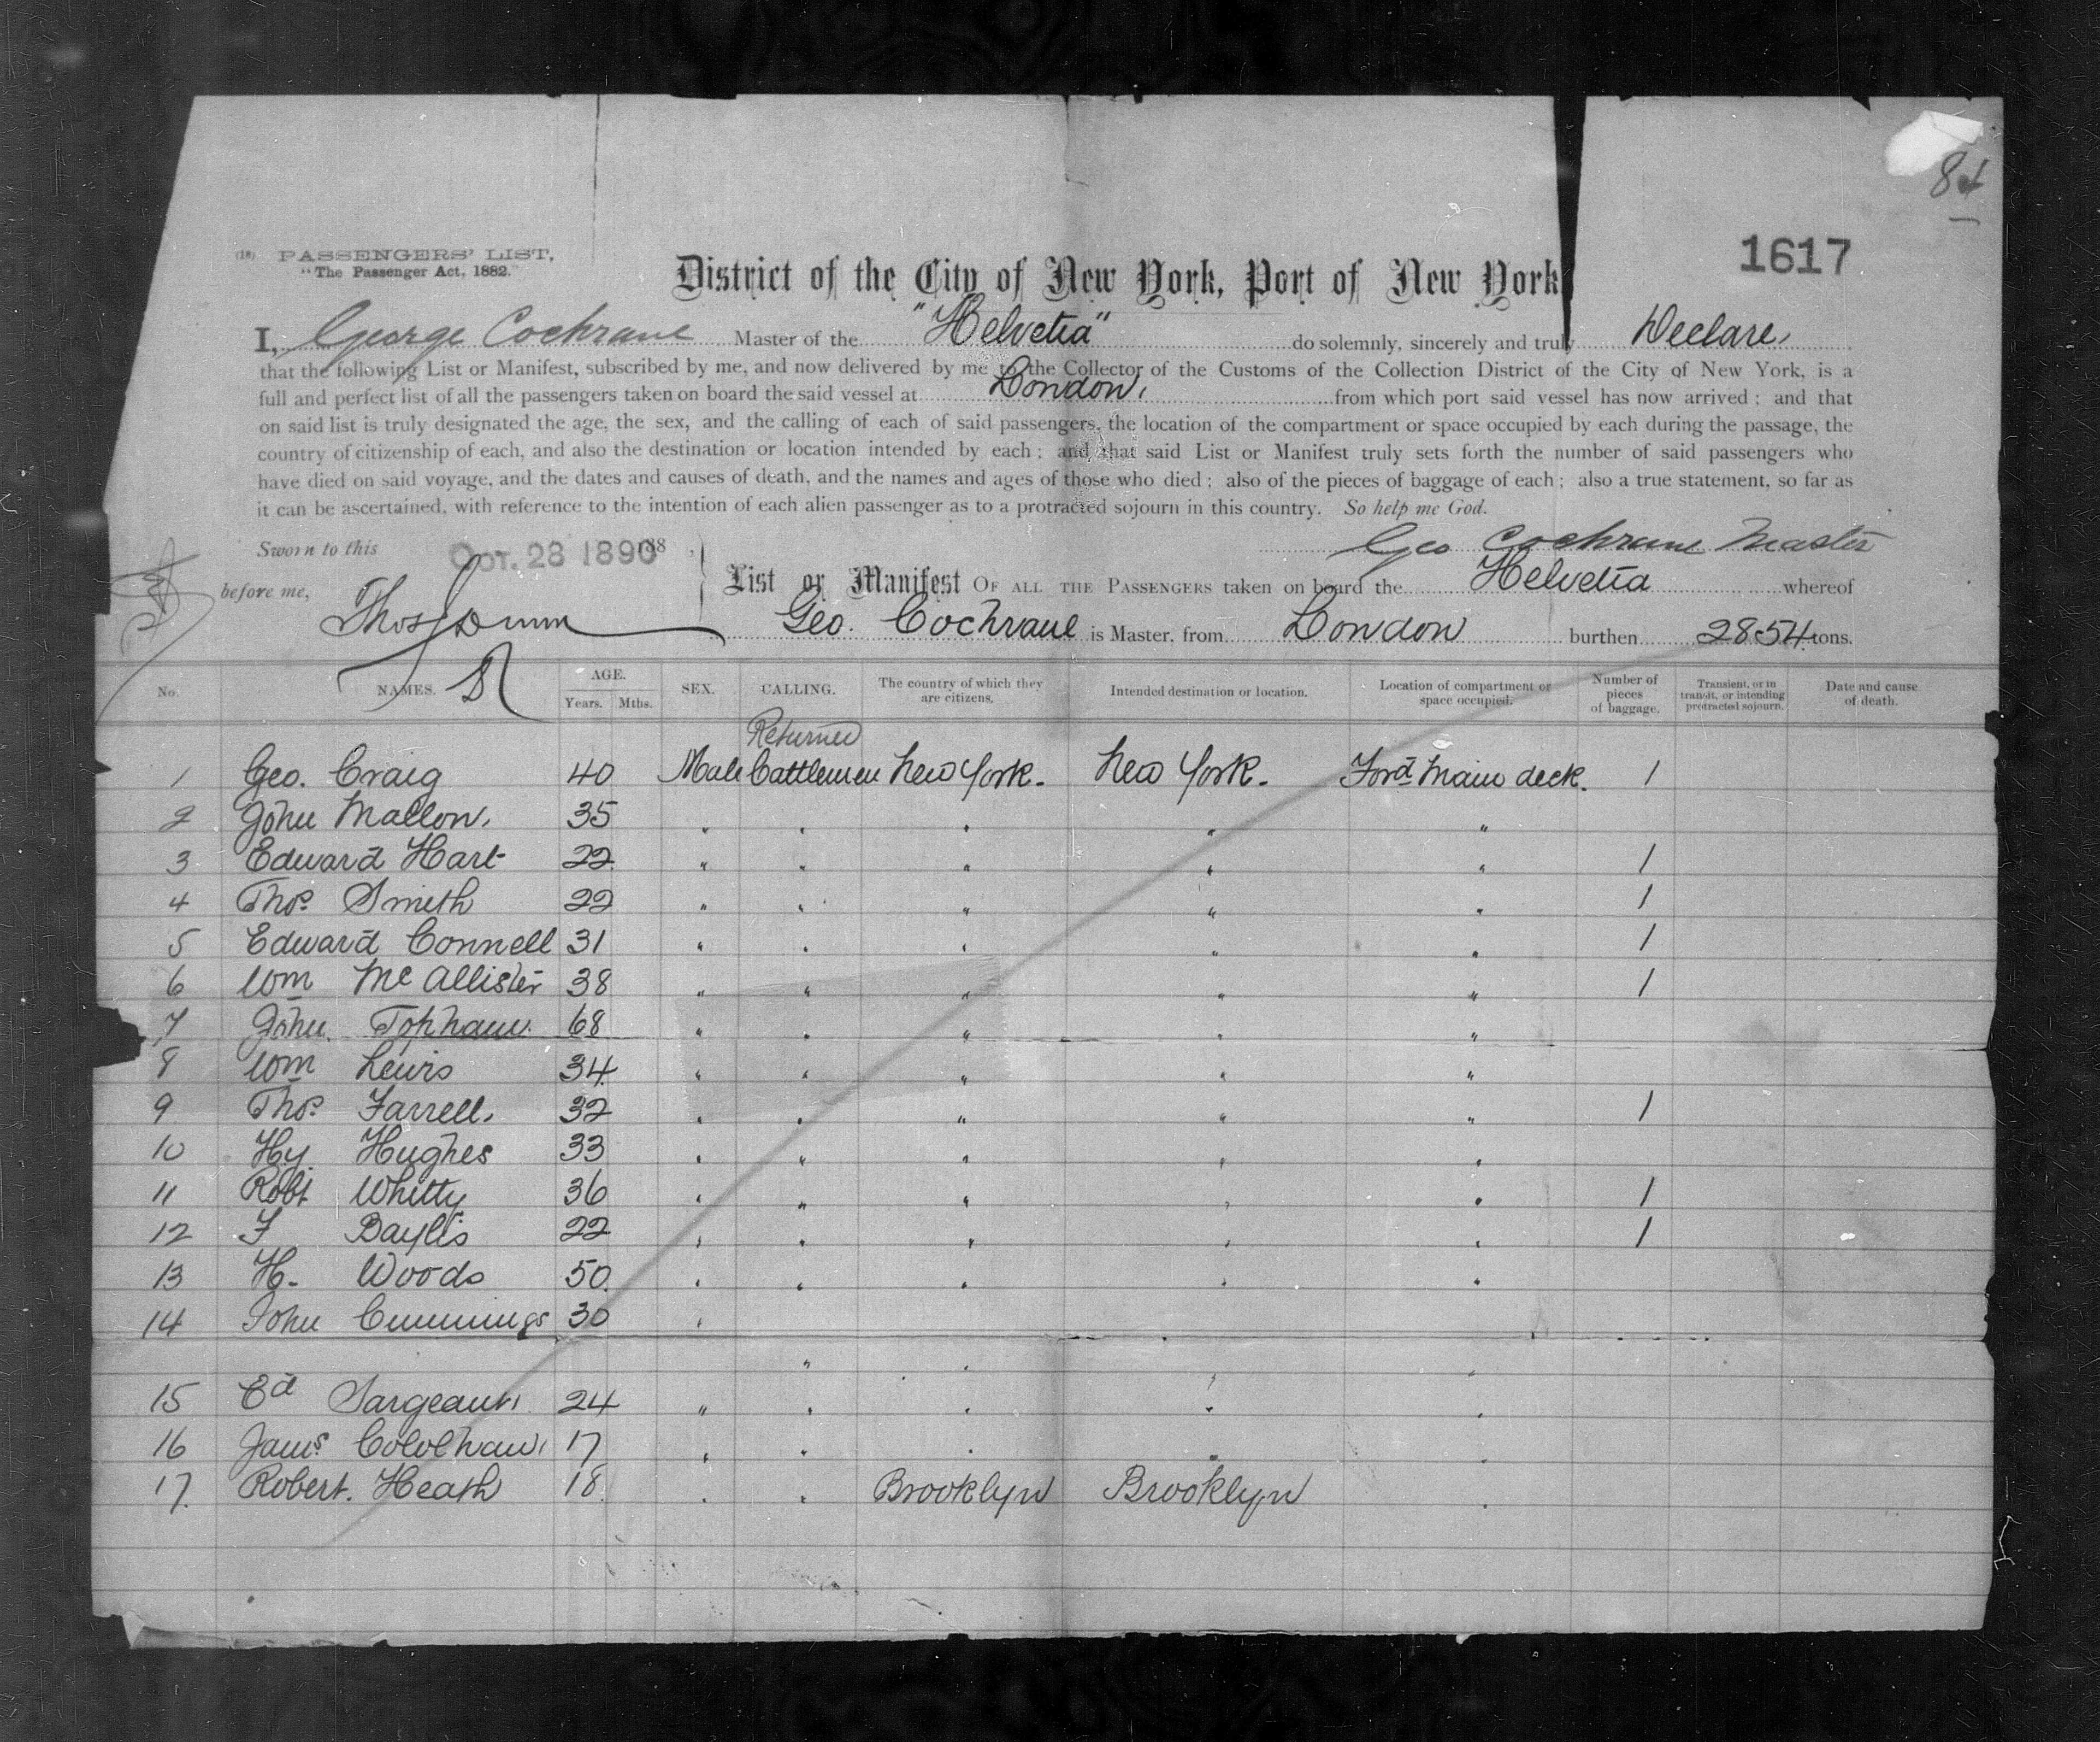 84
1617
(18) PASSENGERS' LIST,
"The Passenger Act, 1882."
District of the City of New York, Port of New York
I, George Cochrane Master of the "Helvetia" do solemnly, sincerely and truly Declare,
that the following List or Manifest, subscribed by me, and now delivered by me to the Collector of the Customs of the Collection District of the City of New York, is a
full and perfect list of all the passengers taken on board the said vessel at London, from which port said vessel has now arrived; and that
on said list is truly designated the age, the sex, and the calling of each of said passengers, the location of the compartment or space occupied by each during the passage, the
country of citizenship of each, and also the destination or location intended by each; and that said List or Manifest truly sets forth the number of said passengers who
have died on said voyage, and the dates and causes of death, and the names and ages of those who died; also of the pieces of baggage of each; also a true statement, so far as
it can be ascertained, with reference to the intention of each alien passenger as to a protracted sojourn in this country. So help me God.
Sworn to this OCT. 28 1890 188 Geo Cochrane Master
before me, List or Manifest OF ALL THE PASSENGERS taken on board the Helvetia whereof
Thos Dunn Geo. Cochrane is Master, from London burthen 2854 tons.
No. NAMES. AGE. Years. Mths. SEX. CALLING. The country of which they are citizens. Intended destination or location. Location of compartment or space occupied. Number of pieces of baggage. Transient, or in transit, or intending protracted sojourn. Date and cause of death.
Returned
1 Geo. Craig 40 Male Cattlemen New York. New York. Ford Main deck. 1
2 John Mallon. 35 " " " " "
3 Edward Hart 22 " " " " " 1
4 Thos. Smith 22 " " " " " 1
5 Edward Connell 31 " " " " " 1
6 Wm McAllister 38 " " " " " 1
7 John Topham. 68 " " " " "
8 Wm Lewis 34 " " " " "
9 Thos. Farrell. 32 " " " " " 1
10 Hy. Hughes 33 " " " " "
11 Robt Whitty 36 " " " " " 1
12 F Baylis 22 " " " " " 1
13 H. Woods 50 " " " " "
14 John Cummings 30 "
" " " "
15 Ed Sargeant 24 " " " " "
16 Jams 17 " " " " "
17. Robert. Heath 18 " " Brooklyn Brooklyn "